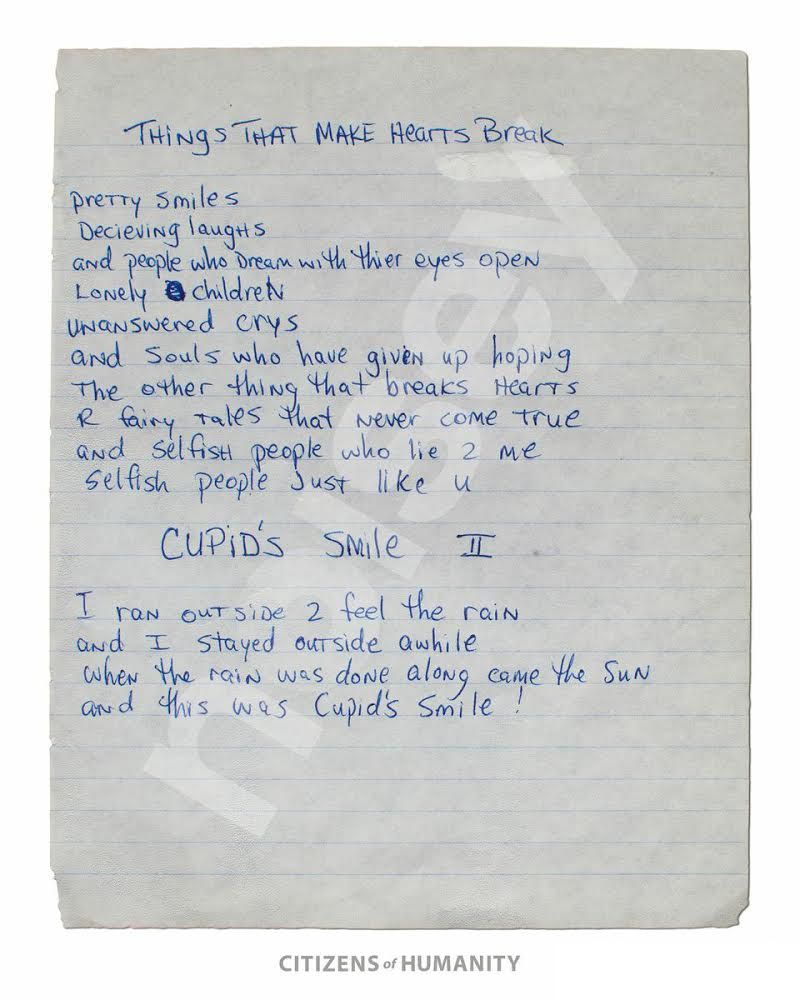 THINGS THAT MAKE HEARTS BREAK
pretty smiles
Decieving laughs
and people who Dream with thier eyes open
Lonely children
unanswered crys
and souls who have given up hoping
The other thing that breaks Hearts
R fairy tales that never come true
and selfish people who lie 2 me
selfish people just like u
CUPID'S SMILE II
I ran outside 2 feel the rain
and I stayed outside awhile
when the rain was done along came the sun
and this was Cupid's Smile !
noisey
CITIZENS of HUMANITY